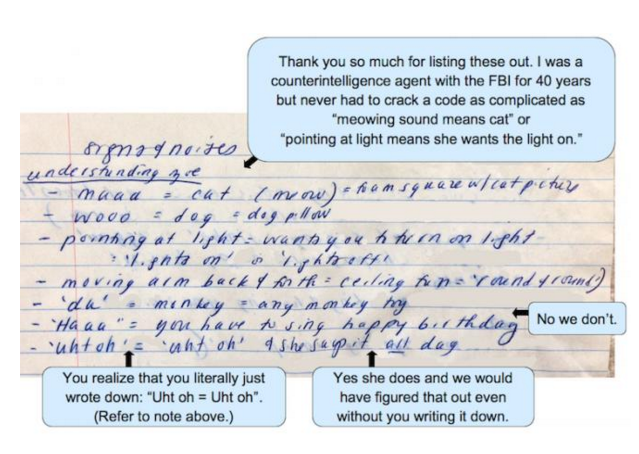 Thank you so much for listing these out. I was a
counterintelligence agent with the FBI for 40 years
but never had to crack a code as complicated as
“meowing sound means cat” or
“pointing at light means she wants the light on.”
signs & noises
understanding zoe
- maaa = cat (meow) = foam square w/ cat picture
- wooo = dog = dog pillow
- pointing at light = wants you to turn on light
= 'lights on' or 'lights off'
- moving arm back & forth = ceiling fan = 'round & round')
- 'da' = monkey = any monkey toy
- "Haaa" = you have to sing happy birthday
- 'uht oh' = 'uht oh' & she says it all day
No we don't.
You realize that you literally just
wrote down: “Uht oh = Uht oh”.
(Refer to note above.)
Yes she does and we would
have figured that out even
without you writing it down.